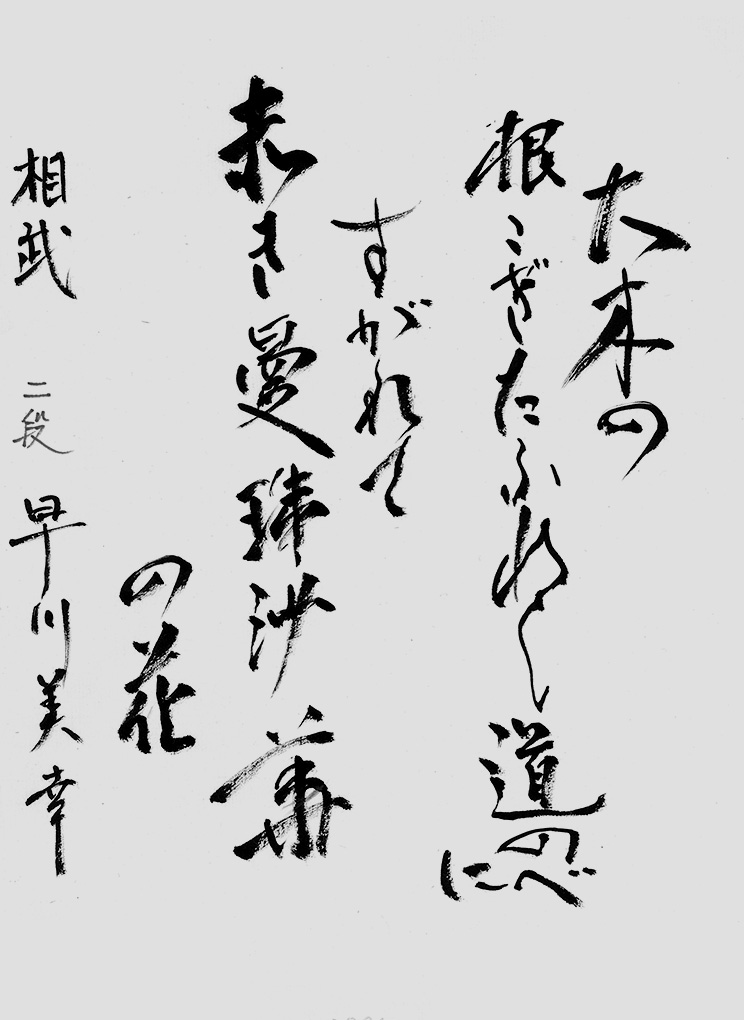 大木の
根こぎたふれし道のべに
すがれて
赤き曼珠沙華
の花
相武 二段 早川美幸